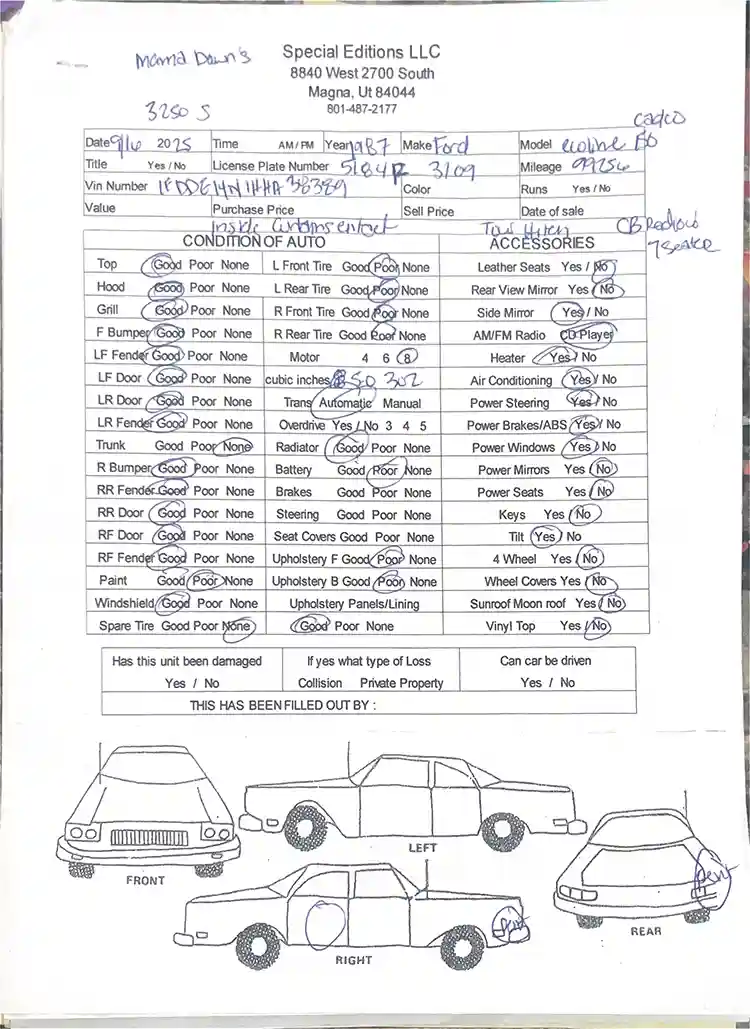 Mama Dawn's
Special Editions LLC
8840 West 2700 South
Magna, Ut 84044
801-487-2177
3250 S
Cadco
Date 9/16 2025 Time AM / PM Year 1987 Make Ford Model
Title Yes / No License Plate Number 3109 Mileage 99256
Vin Number 1FDDE14N1HHA38389 Color Runs Yes / No
Value Purchase Price Sell Price Date of sale
Inside Curtains entact Tow Hitch CB Radio
7 Seater
CONDITION OF AUTO ACCESSORIES
Top Good Poor None L Front Tire Good Poor None Leather Seats Yes / No
Hood Good Poor None L Rear Tire Good Poor None Rear View Mirror Yes / No
Grill Good Poor None R Front Tire Good Poor None Side Mirror Yes / No
F Bumper Good Poor None R Rear Tire Good Poor None AM/FM Radio CD Player
LF Fender Good Poor None Motor 4 6 8 Heater Yes / No
LF Door Good Poor None cubic inches 5.0 302 Air Conditioning Yes / No
LR Door Good Poor None Trans Automatic Manual Power Steering Yes / No
LR Fender Good Poor None Overdrive Yes / No 3 4 5 Power Brakes/ABS Yes / No
Trunk Good Poor None Radiator Good Poor None Power Windows Yes / No
R Bumper Good Poor None Battery Good Poor None Power Mirrors Yes / No
RR Fender Good Poor None Brakes Good Poor None Power Seats Yes / No
RR Door Good Poor None Steering Good Poor None Keys Yes / No
RF Door Good Poor None Seat Covers Good Poor None Tilt Yes / No
RF Fender Good Poor None Upholstery F Good Poor None 4 Wheel Yes / No
Paint Good Poor None Upholstery B Good Poor None Wheel Covers Yes / No
Windshield Good Poor None Upholstery Panels/Lining Sunroof Moon roof Yes / No
Spare Tire Good Poor None Good Poor None Vinyl Top Yes / No
Has this unit been damaged If yes what type of Loss Can car be driven
Yes / No Collision Private Property Yes / No
THIS HAS BEEN FILLED OUT BY :
FRONT
LEFT
RIGHT
Dent
REAR